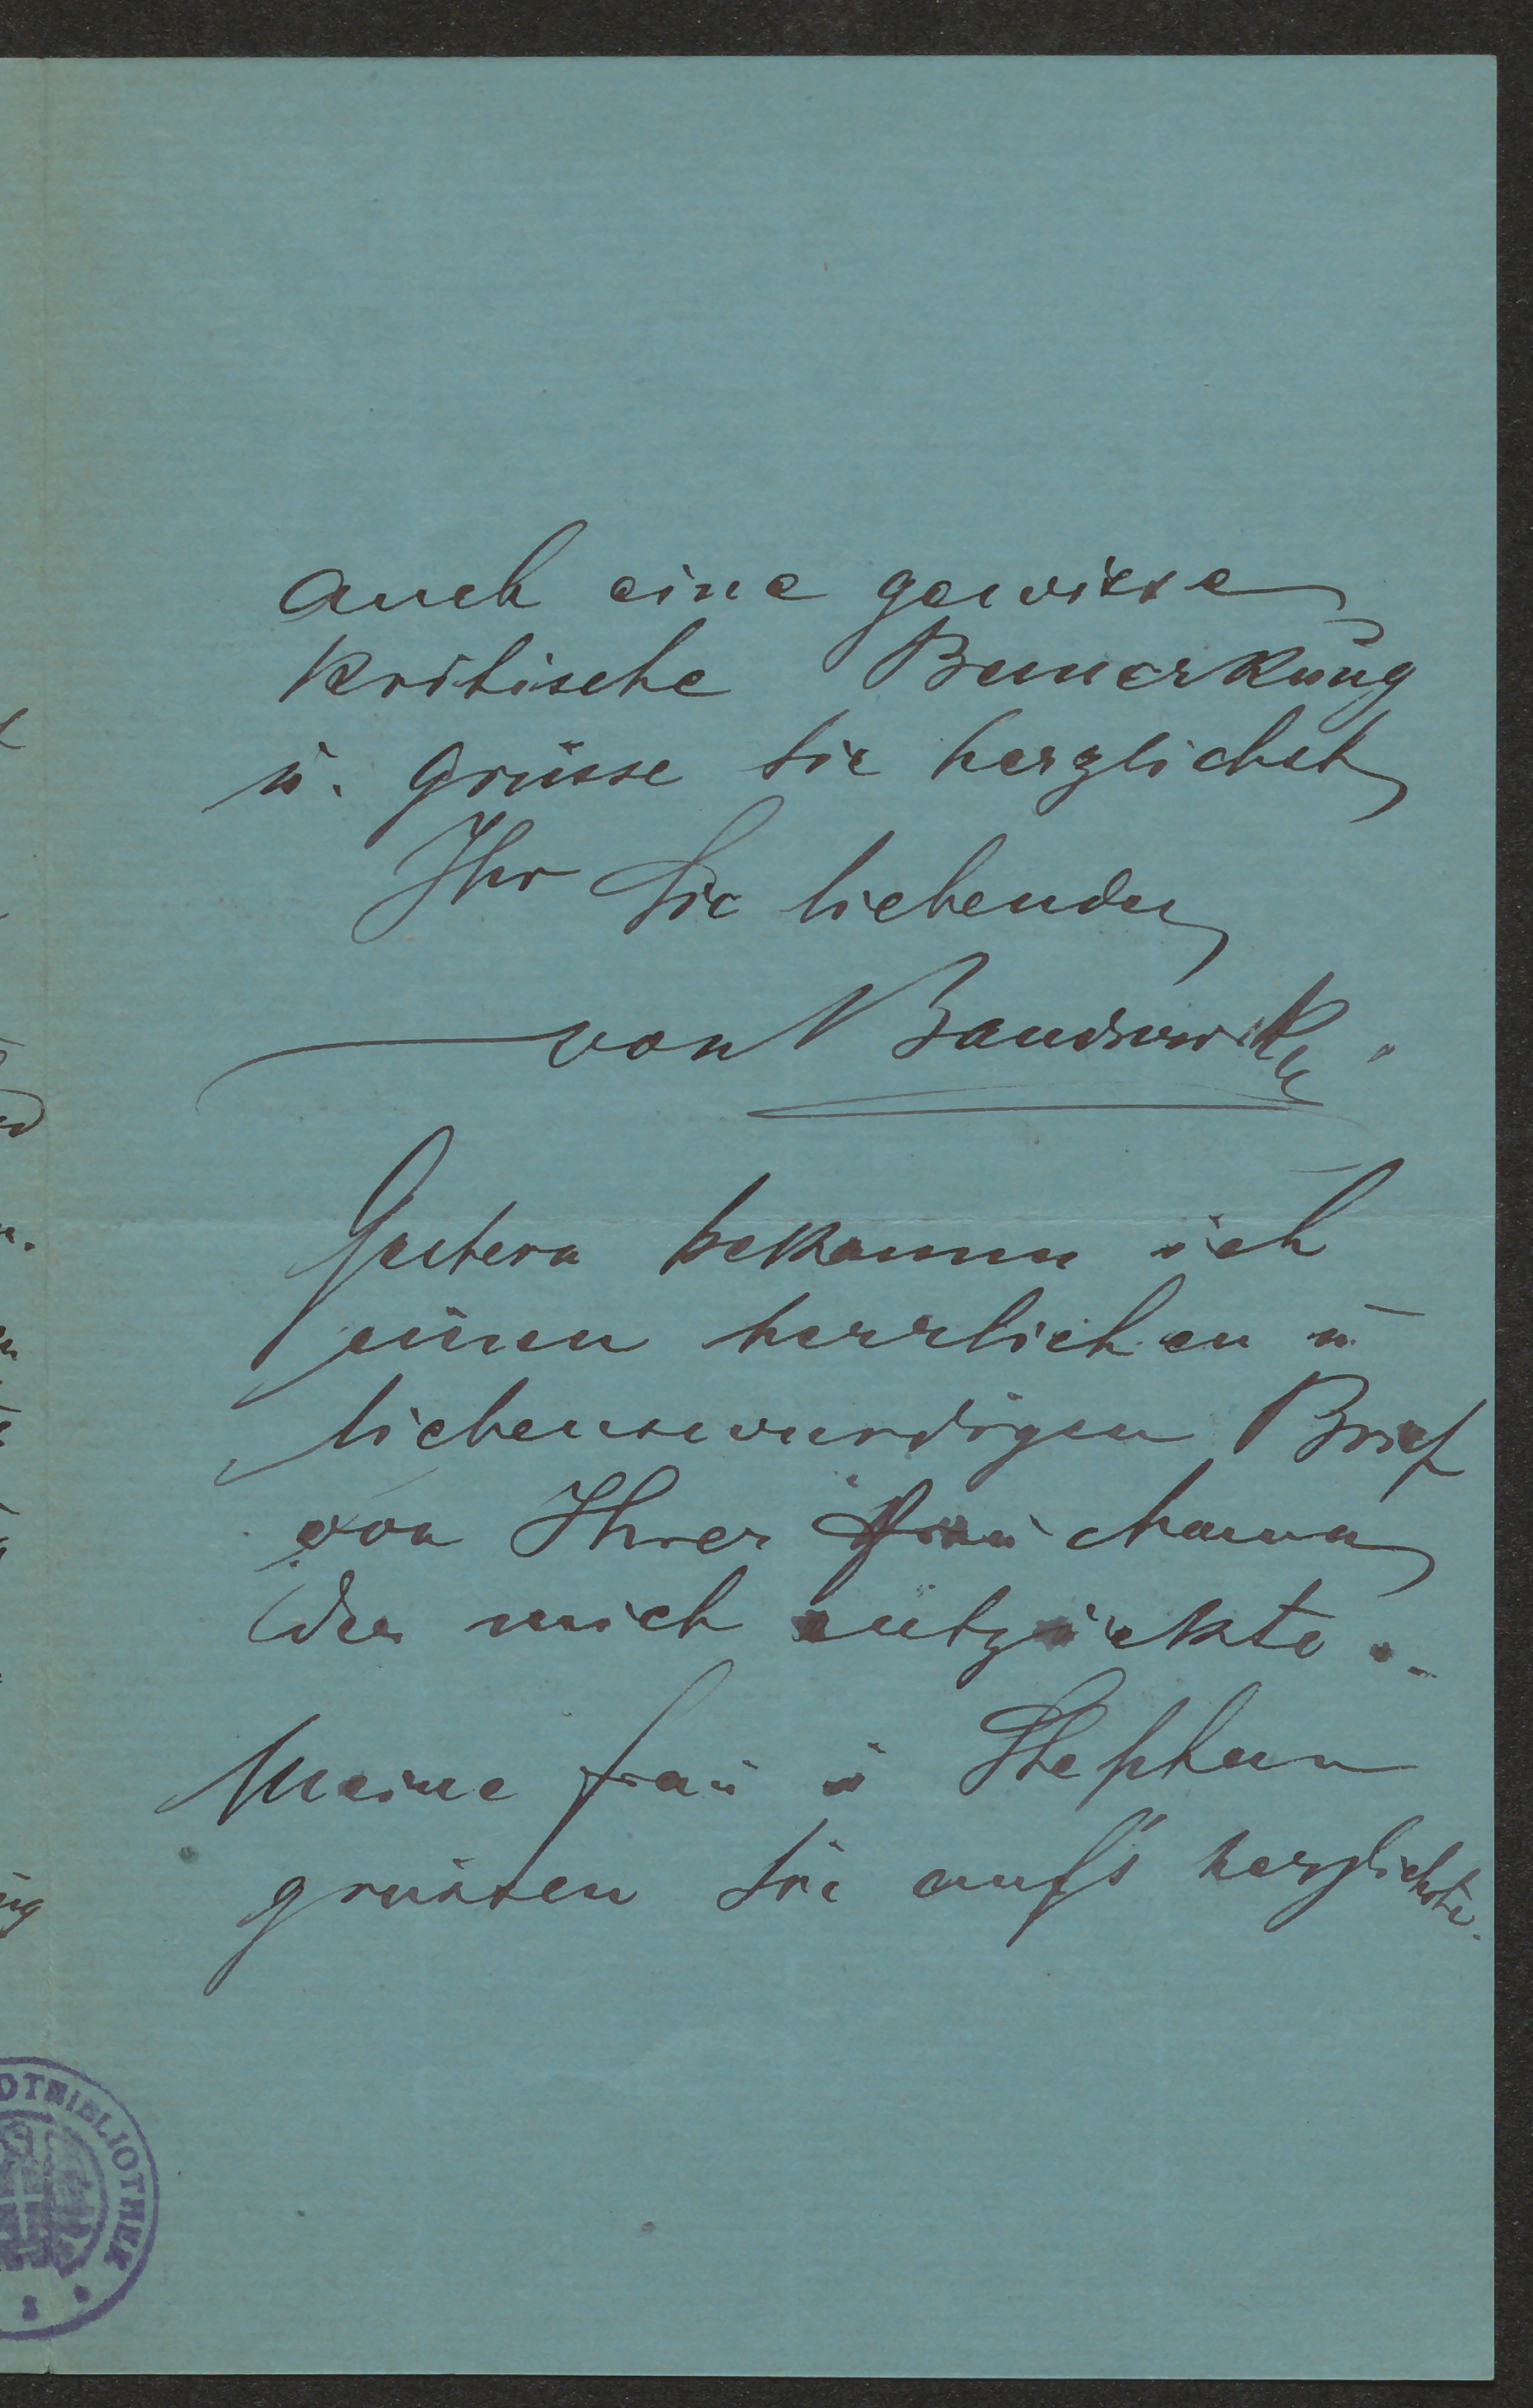 auch eine gewisse
kritische Bemerkung
u. grüsse Sie herzlichst
Ihr Sie liebender
von Bandrowski.
Gestern bekamm ich
einen herrlichen u.
liebenswurdigen Brief
von Ihrer Frau Mama
der mich entzückte.
Meine Frau u Stephan
grüssen Sie auf's herzlichste.
OTBIBLIOTHEK